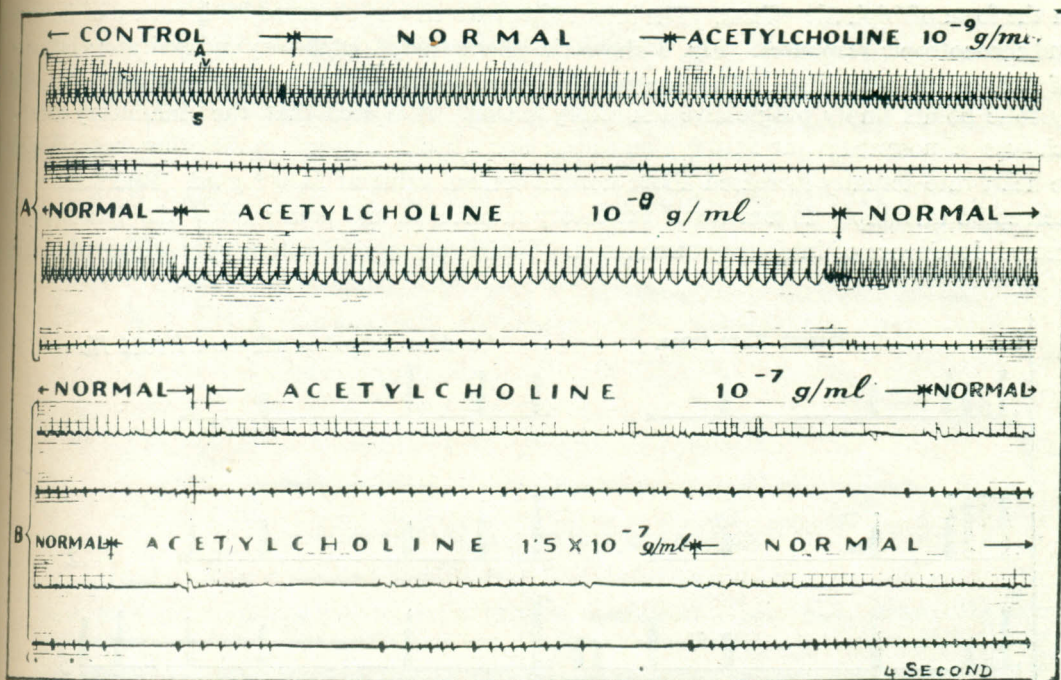 ← CONTROL → ← NORMAL → ← ACETYLCHOLINE 10⁻⁹ g/ml.
A
S
A
←NORMAL→ ← ACETYLCHOLINE 10⁻⁸ g/ml → ← NORMAL →
←NORMAL→ ← ACETYLCHOLINE 10⁻⁷ g/ml → ←NORMAL→
B
NORMAL ← ACETYLCHOLINE 1·5 X 10⁻⁷ g/ml ← NORMAL →
4 SECOND